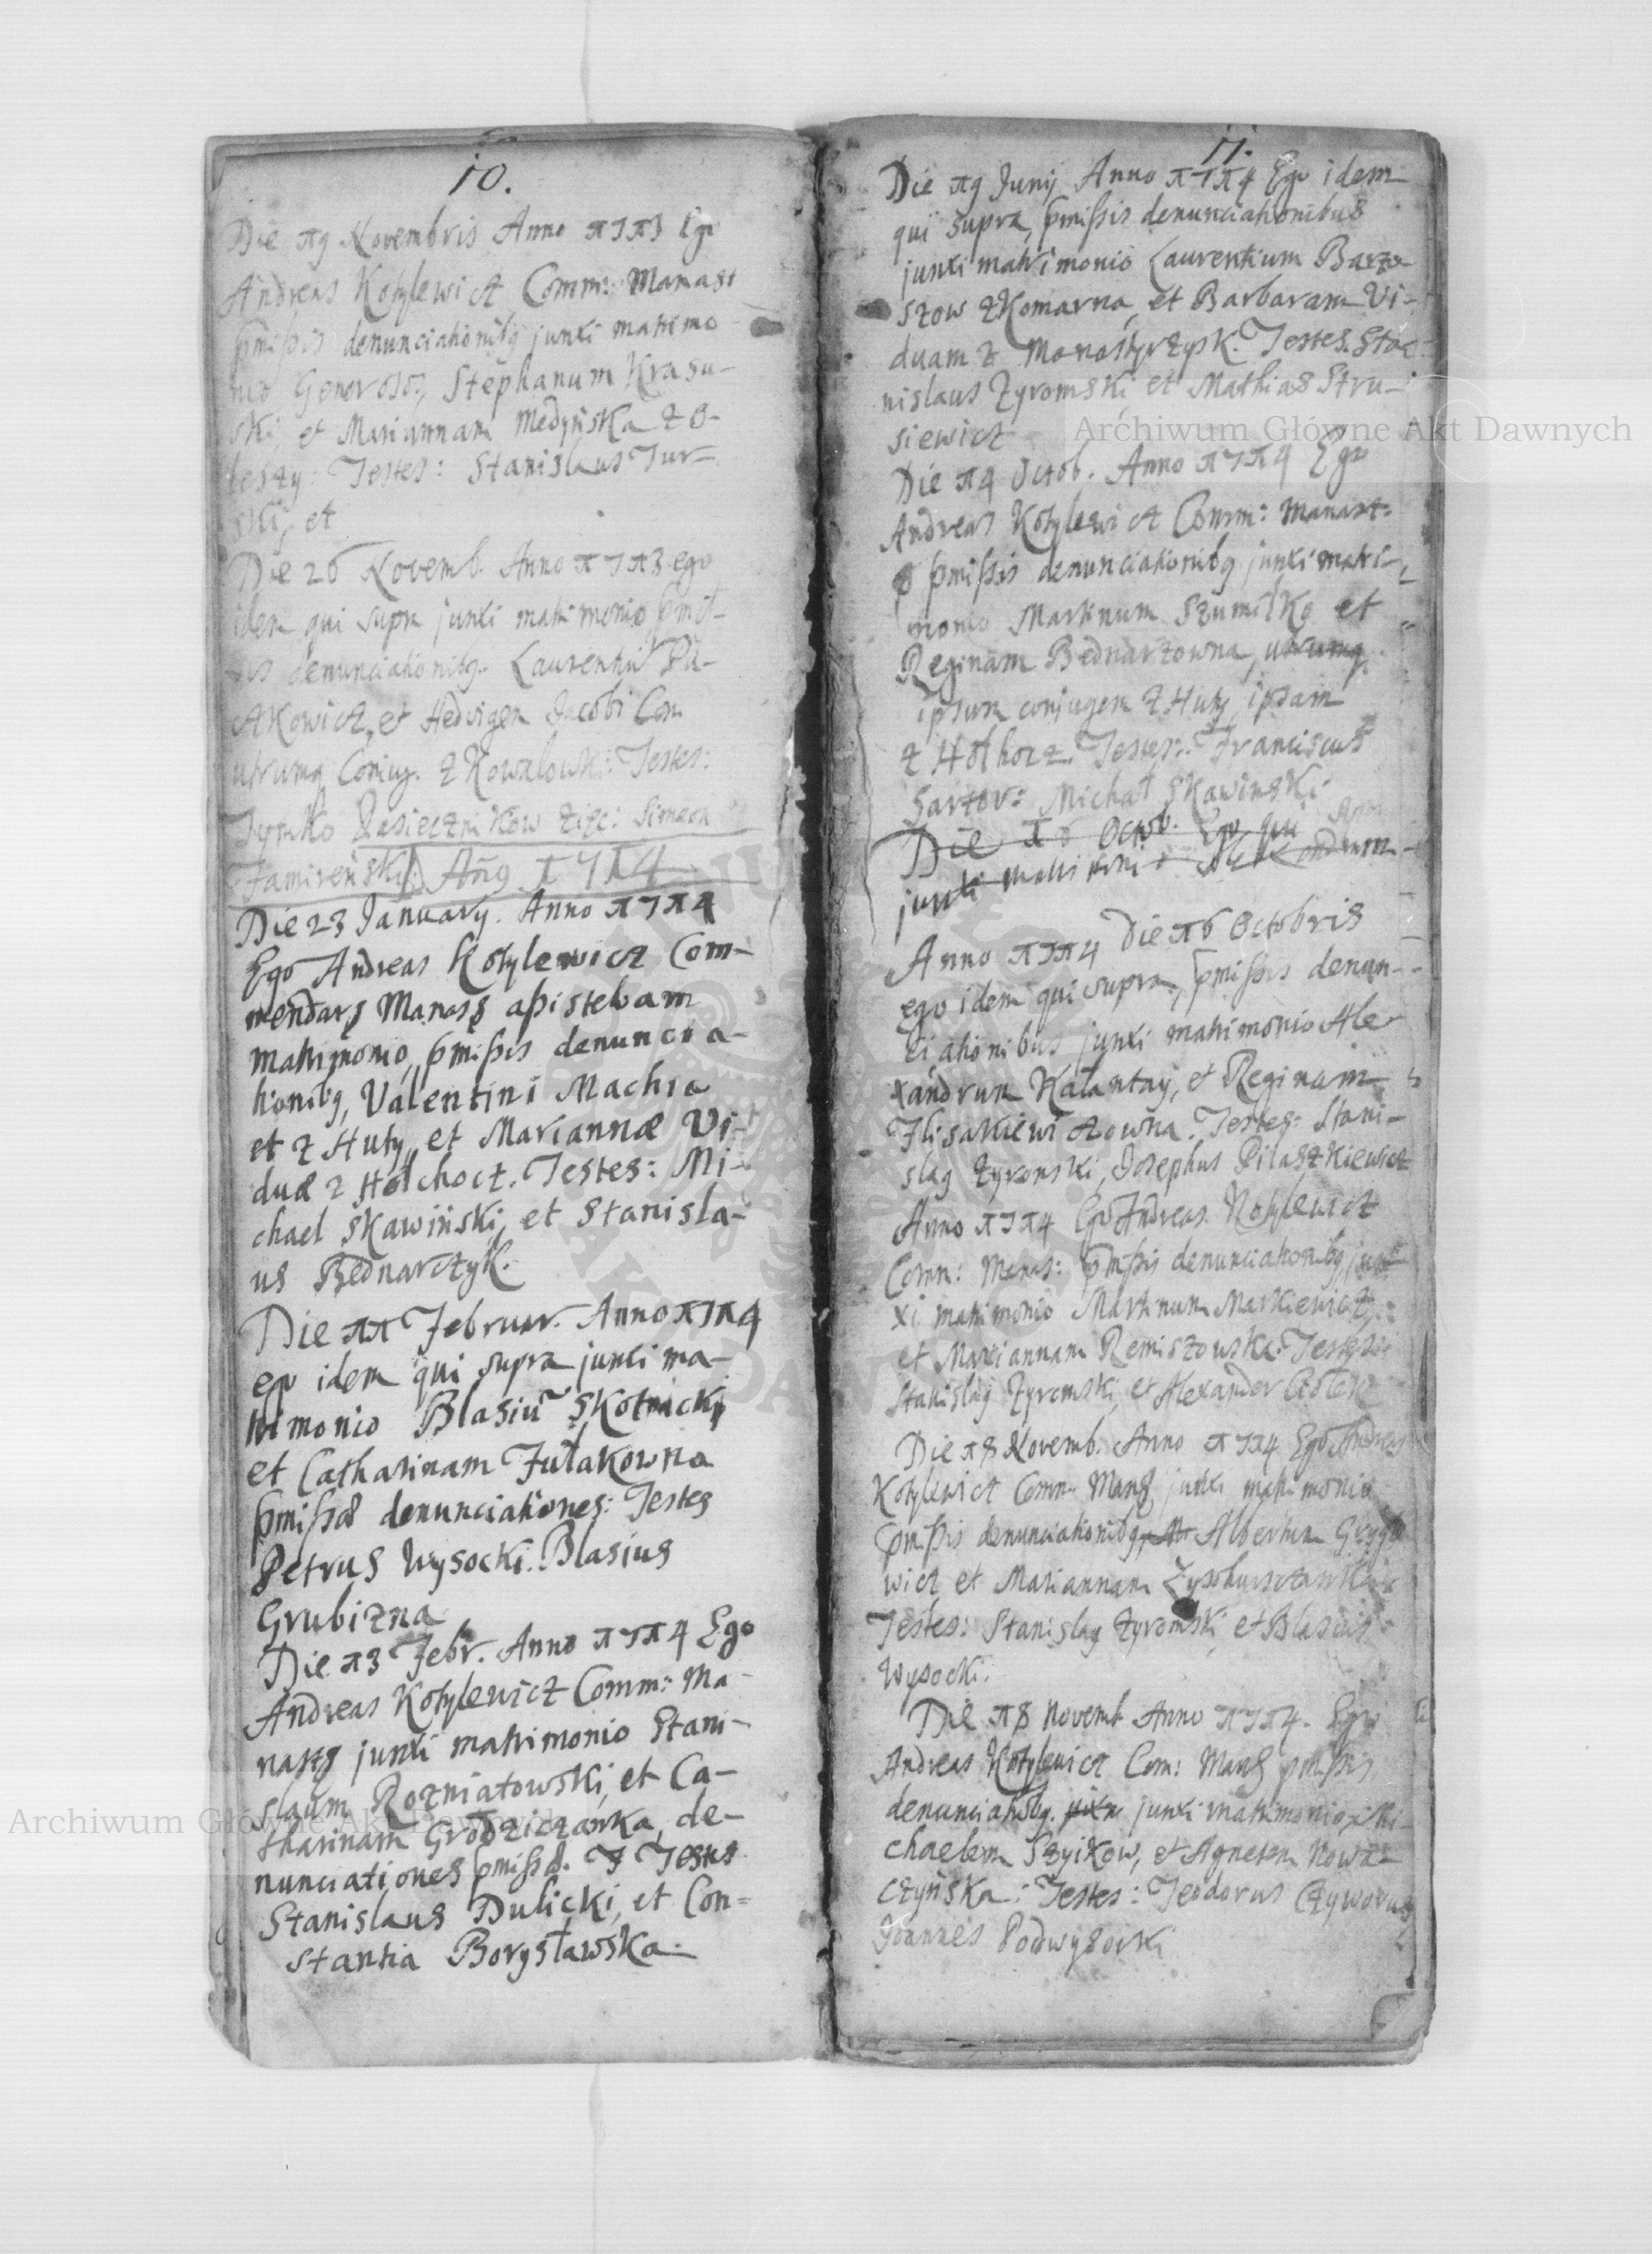 10.
Die 19 Novembris Anno 1713 Ego
Andreas Kotylewicz Comm: Manast
pmissis denunciationibq junxi matrimo-
nio Generosos, Stephanum Krasu-
ski, et Mariannam Medyńska z O-
leszy: Testes: Stanislaus Tur-
ski, et
Die 26 Novemb. Anno 1713 ego
idem qui supra junxi matrimonio pmis-
sis denunciationibq. Laurentiū
et Hedvigem Jacobi Com
utrumq Coniug. z Kowalowki: Testes:
Tymko Pasiecznikow zięc: Simeon
Anno 1714
Die 23 January. Anno 1714
Ego Andreas Kotylewicz Com-
mendarq Manasq assistebam
matrimonio, pmissis denuncia-
tionibq, Valentini Machia
et z Huty, et Mariannæ Vi-
duæ z Holchocz. Testes: Mi-
chael Skawiński, et Stanisla-
us Bednarczyk.
Die 11 Februar. Anno 1714
ego idem qui supra junxi ma-
trimonio Blasiū Skotnicki
et Catharinam Futakowna
pmissæ denunciationes: Testes
Petrus Wysocki. Blasius
Grubizna
Die 13 Febr. Anno 1714 Ego
Andreas Kotylewicz Comm: Ma-
nastq junxi matrimonio Stani-
slaum Rozniatowski, et Ca-
tharinam Grodziczanka, de-
nunciationes pmissæ. Testes
Stanislaus Dulicki, et Con-
stantia Borysławska.
11.
Die 19 Junij Anno 1714 Ego idem
qui supra, pmissis denunciationibus
junxi matrimonio Laurentium Barto-
szow z Komarna, et Barbaram Vi-
duam z Monastyrzysk. Testes. Sta-
nislaus Zyromski et Mathias Stru-
siewicz
Die 14 Octob. Anno 1714 Ego
Andreas Kotylewicz Comm: Manast:
pmissis denunciationibq junxi matri-
monio Martinum Szumiłko et
Reginam Bednarzowna, utrumq
ipsum conjugem z Huty, ipsam
z Holhocz. Testes: Franciscus
Sartor: Michał Skawinski.
Die 16 Octob. Ego qui
junxi matrimonio Alexandrum
Anno 1714 Die 16 Octobris
ego idem qui supra, pmissis denun-
ciationibus junxi matrimonio Ale-
xandrum Kałantay, et Reginam
Ilisakiewiczowna. Testes: Stani-
slaq Zyromski, Josephus Pilaszkiewicz
Anno 1714 Ego Andreas Kotylewicz
Comm: Manas: pmissis denunciationibq jun-
xi matrimonio Martinum Markiewicz,
et Mariannam Remiszowska. Testes:
Stanislaq Zyromski, et Alexander
Die 18 Novemb. Anno 1714 Ego Andreas
Kotylewicz Comm: Manq junxi matrimonio
pmissis denunciationibq, Albertum
wicz et Mariannam
Testes: Stanislaq Zyromski et Blasius
Wysocki.
Die 18 Novemb Anno 1714. Ego
Andreas Kotylewicz Com: Manq pmissis
denunciatiobq. junxi matrimonio, Mi-
chaelem Szyikow, et Agnetem Nowa-
czyńska: Testes: Teodorus
Joannes Podwysocki
Archiwum Główne Akt Dawnych
Archiwum Główne Akt Dawnych